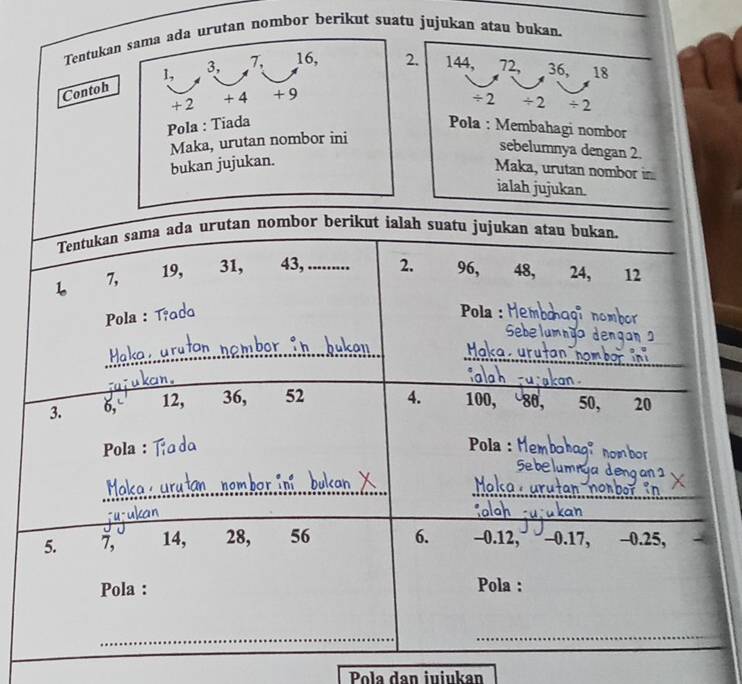 Tentukan sama ada urutan nombor berikut suatu jujukan atau bukan.
Contoh
1, 3, 7, 16,
+ 2 + 4 + 9
Pola : Tiada
Maka, urutan nombor ini
bukan jujukan.
2. 144, 72, 36, 18
÷ 2 ÷ 2 ÷ 2
Pola : Membahagi nombor
sebelumnya dengan 2.
Maka, urutan nombor in
ialah jujukan.
Tentukan sama ada urutan nombor berikut ialah suatu jujukan atau bukan.
1. 7, 19, 31, 43, .........
Pola : Tiada
Maka, urutan nombor in bukan
jujukan.
2. 96, 48, 24, 12
Pola : Membahagi nombor
Sebelumnya dengan 2
Maka, urutan nombor ini
ialah jujukan.
3. 6, 12, 36, 52
Pola : Tiada
Maka, urutan nombor ini bukan X
jujukan
4. 100, 80, 50, 20
Pola : Membahagi nombor
Sebelumnya dengan 2
Maka, urutan nonbor in X
ialah jujukan
5. 7, 14, 28, 56
Pola :
6. –0.12, –0.17, –0.25, –
Pola :
Pola dan jujukan